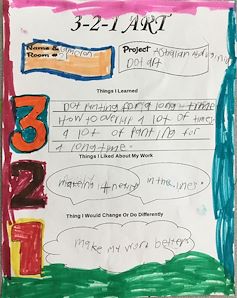 3-2-1 ART
Name &
Room #
Project
Dot art
Things I Learned
3
Dot
for a long time
How to
a lot of times
a lot of
for
a long time.
Things I Liked About My Work
2
making it neatly
in the lines
Thing I Would Change Or Do Differently
1
make my work better